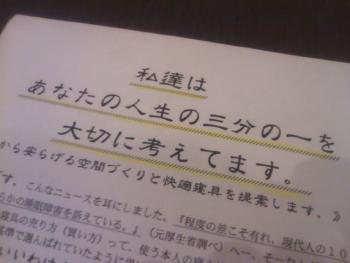 私達は
あなたの人生の三分の一を
大切に考えてます。
から安らげる空間づくりと快適寝具を提案します。》
す。こんなニュースを耳にしました。『程度の差こそ有れ、現代人の１０
らかの睡眠障害を訴えている。』（元厚生省調べ）へー、そーなんだ
寝具の売り方（買い方）って、使う本人の寝
基準で選んばれていたように思
いいわけ